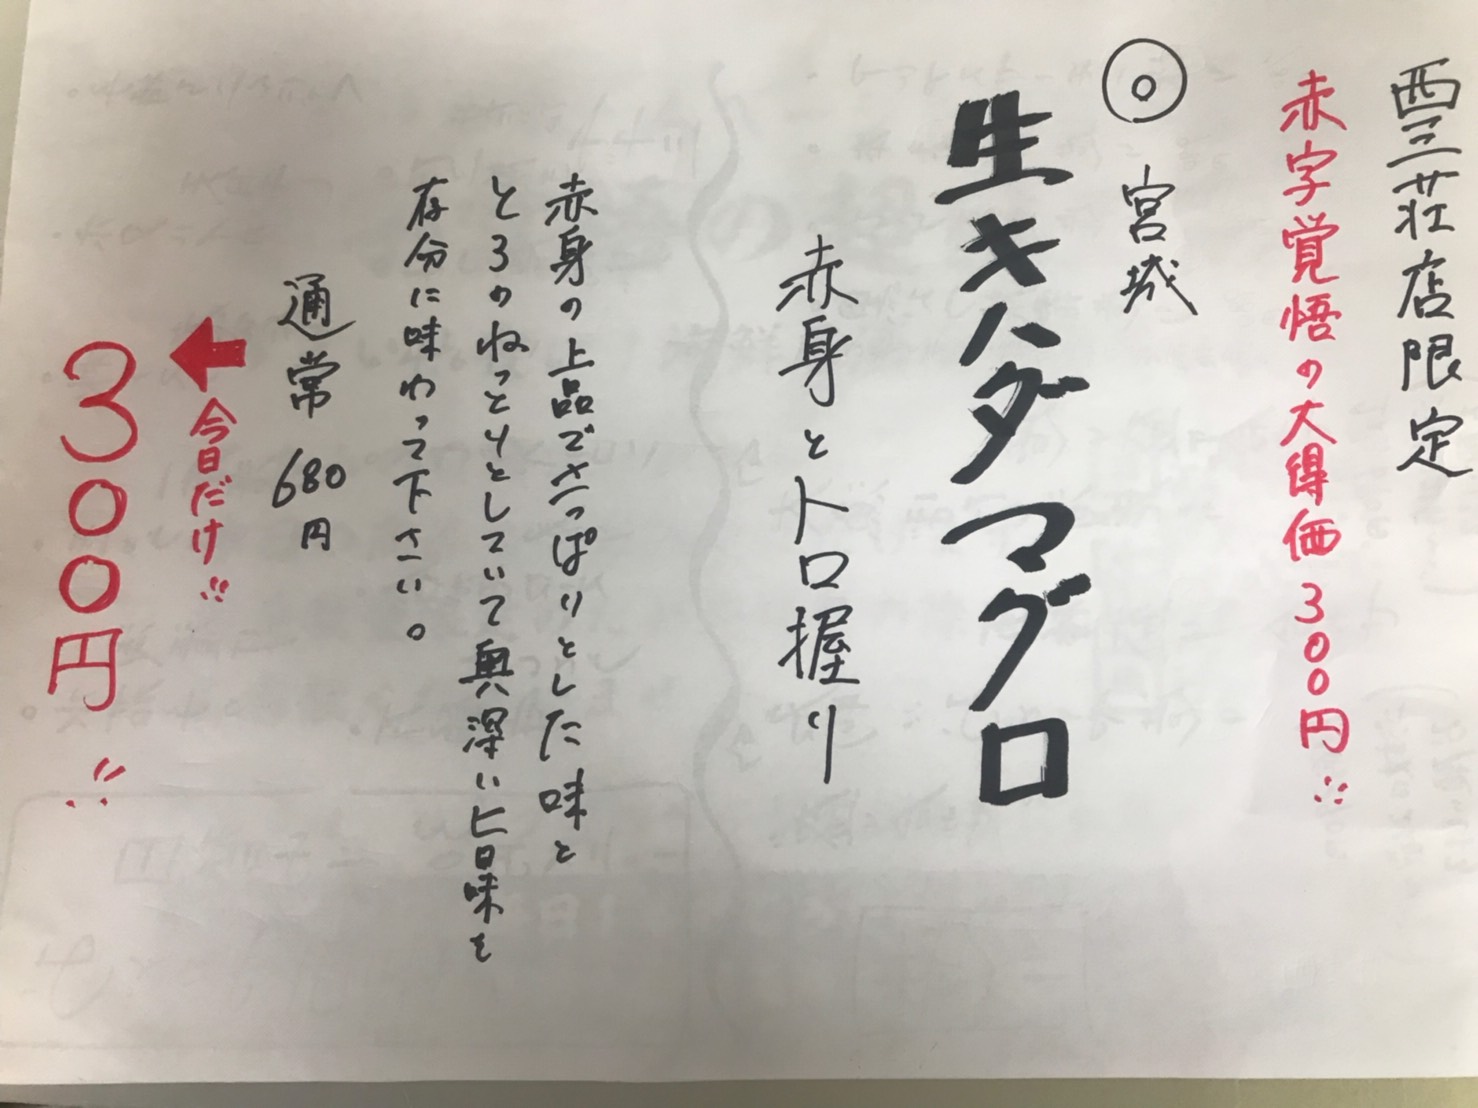 西三荘店限定
赤字覚悟の大得価300円!!
◎ 宮城
生キハダマグロ
赤身とトロ握り
赤身の上品でさっぱりとした味と
とろのねっとりとしていて奥深い旨味を
存分に味わって下さい。
通常 680円
今日だけ!!
300円!!